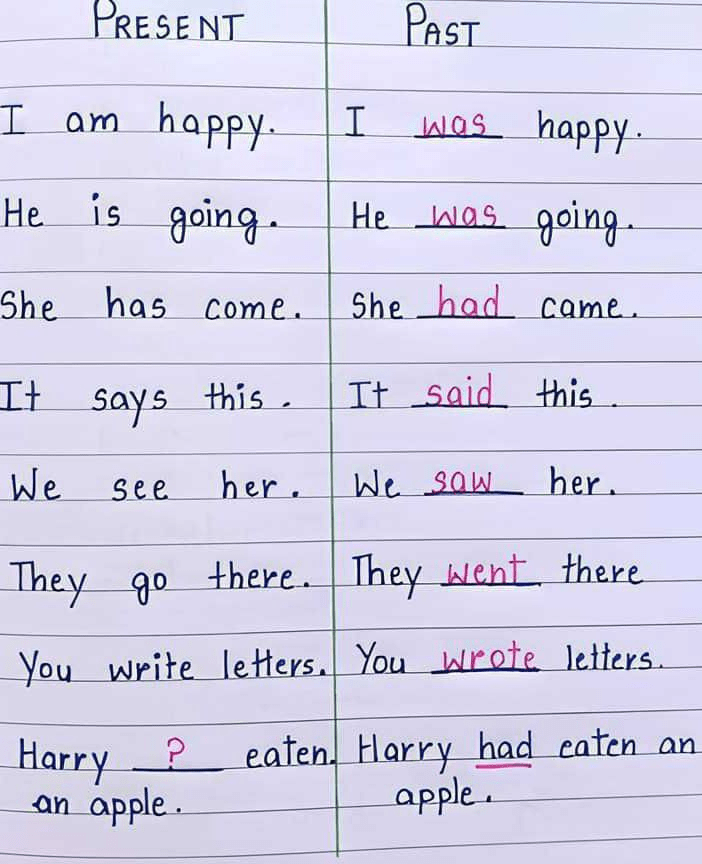 PRESENT PAST
I am happy. I was happy.
He is going. He was going.
She has come. She had came.
It says this. It said this.
We see her. We saw her.
They go there. They went there
You write letters. You wrote letters.
Harry ? eaten. Harry had eaten an
an apple. apple.